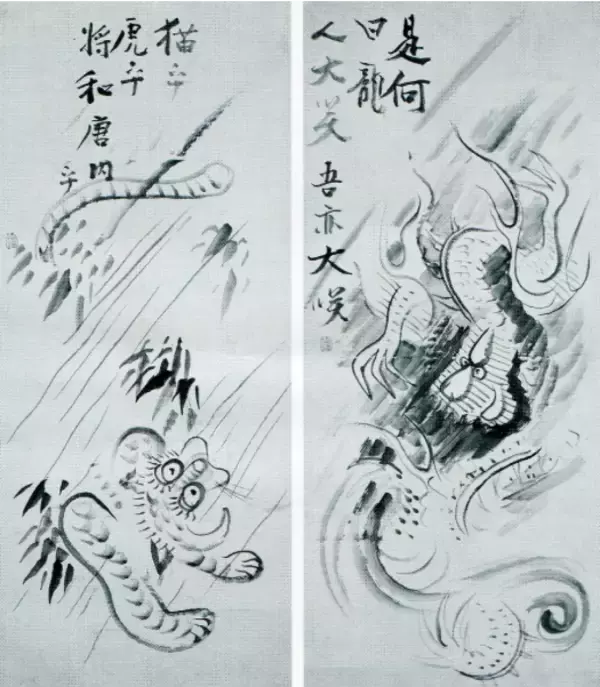 是何
曰龍
人大笑吾亦大咲
猫乎
虎乎
将和唐内
乎